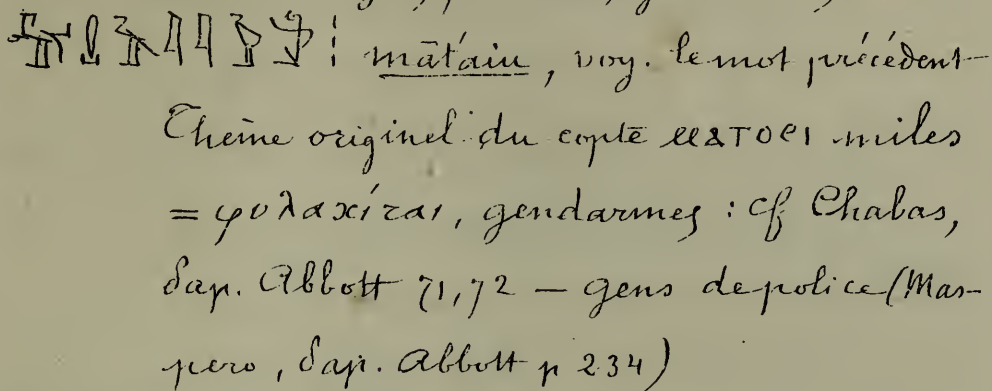 mātaiu, voy. le mot précédent
Thême originel du copte ⲙⲁⲧⲟⲉⲓ miles
= φυλακίται, gendarmes : cf Chabas,
Pap. Abbott 71,72 — gens de police (Mas-
pero, Pap. Abbott p 234)